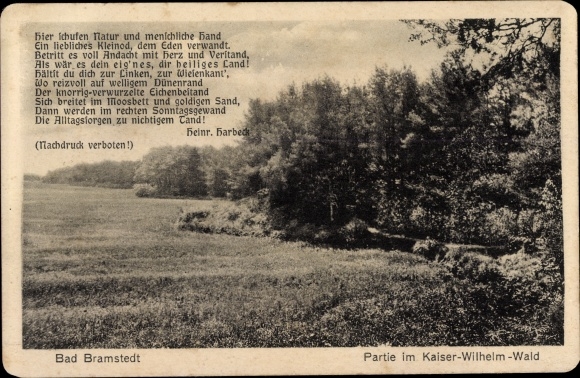 Hier schufen Natur und menschliche Hand
Ein liebliches Kleinod, dem Eden verwandt.
Betritt es voll Andacht mit Herz und Verstand,
Als wär es dein eig'nes, dir heiliges Land!
Hältst du dich zur Linken, zur Wielenkant',
Wo reizvoll auf welligem Dünenrand
Der knorrig-verwurzelte Eichenbestand
Sich breitet im Moosbett und goldigen Sand,
Dann werden im rechten Sonntagsgewand
Die Alltagsorgen zu nichtigem Tand!
Heinr. Harbeck
(Nachdruck verboten!)
Bad Bramstedt
Partie im Kaiser-Wilhelm-Wald